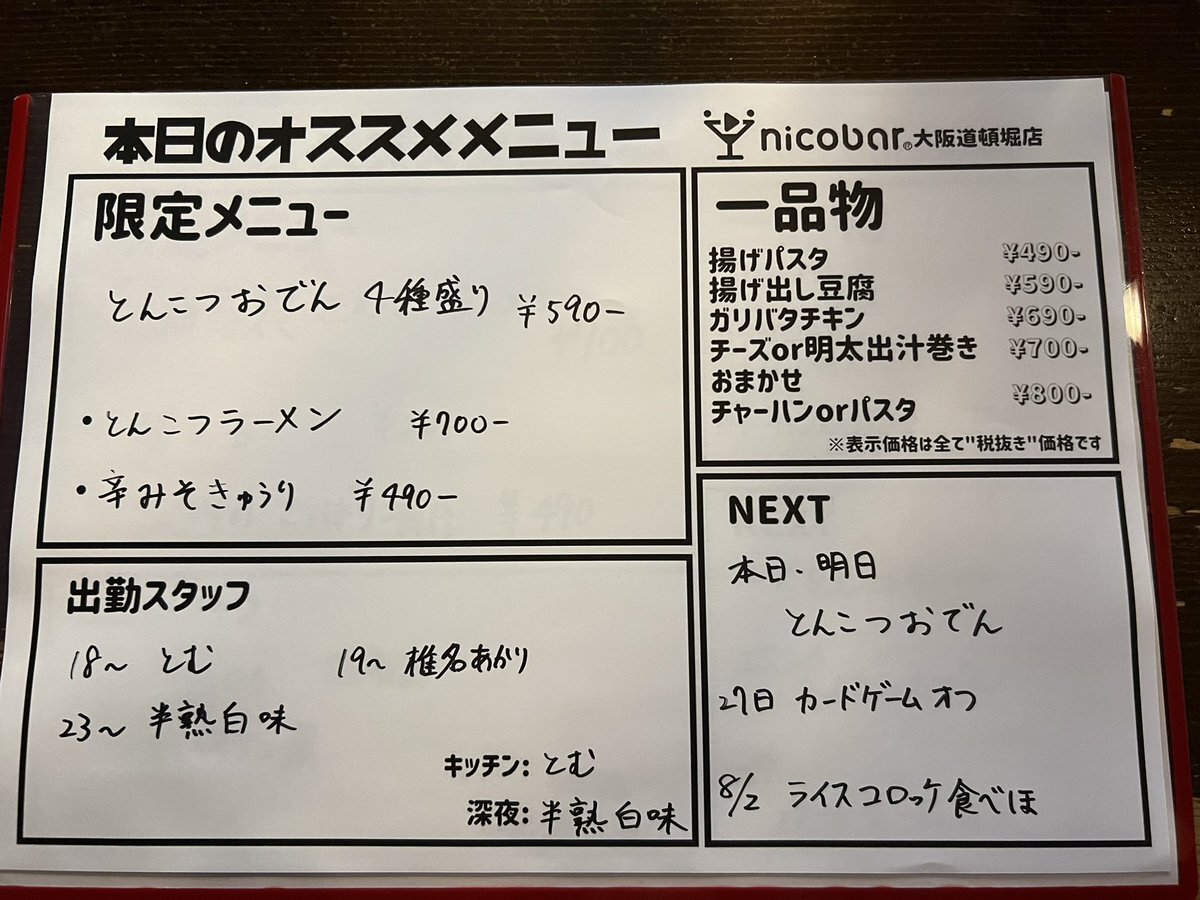 本日のオススメメニュー
nicobar® 大阪道頓堀店
限定メニュー
とんこつおでん 4種盛り ¥590-
・とんこつラーメン ¥700-
・辛みそきゅうり ¥490-
一品物
揚げパスタ ¥490-
揚げ出し豆腐 ¥590-
ガリバタチキン ¥690-
チーズor明太出汁巻き ¥700-
おまかせ
チャーハンorパスタ ¥800-
※表示価格は全て"税抜き"価格です
出勤スタッフ
18〜 とむ 19〜 椎名あかり
23〜 半熟白味
キッチン: とむ
深夜: 半熟白味
NEXT
本日・明日
とんこつおでん
27日 カードゲームオフ
8/2 ライスコロッケ食べほ